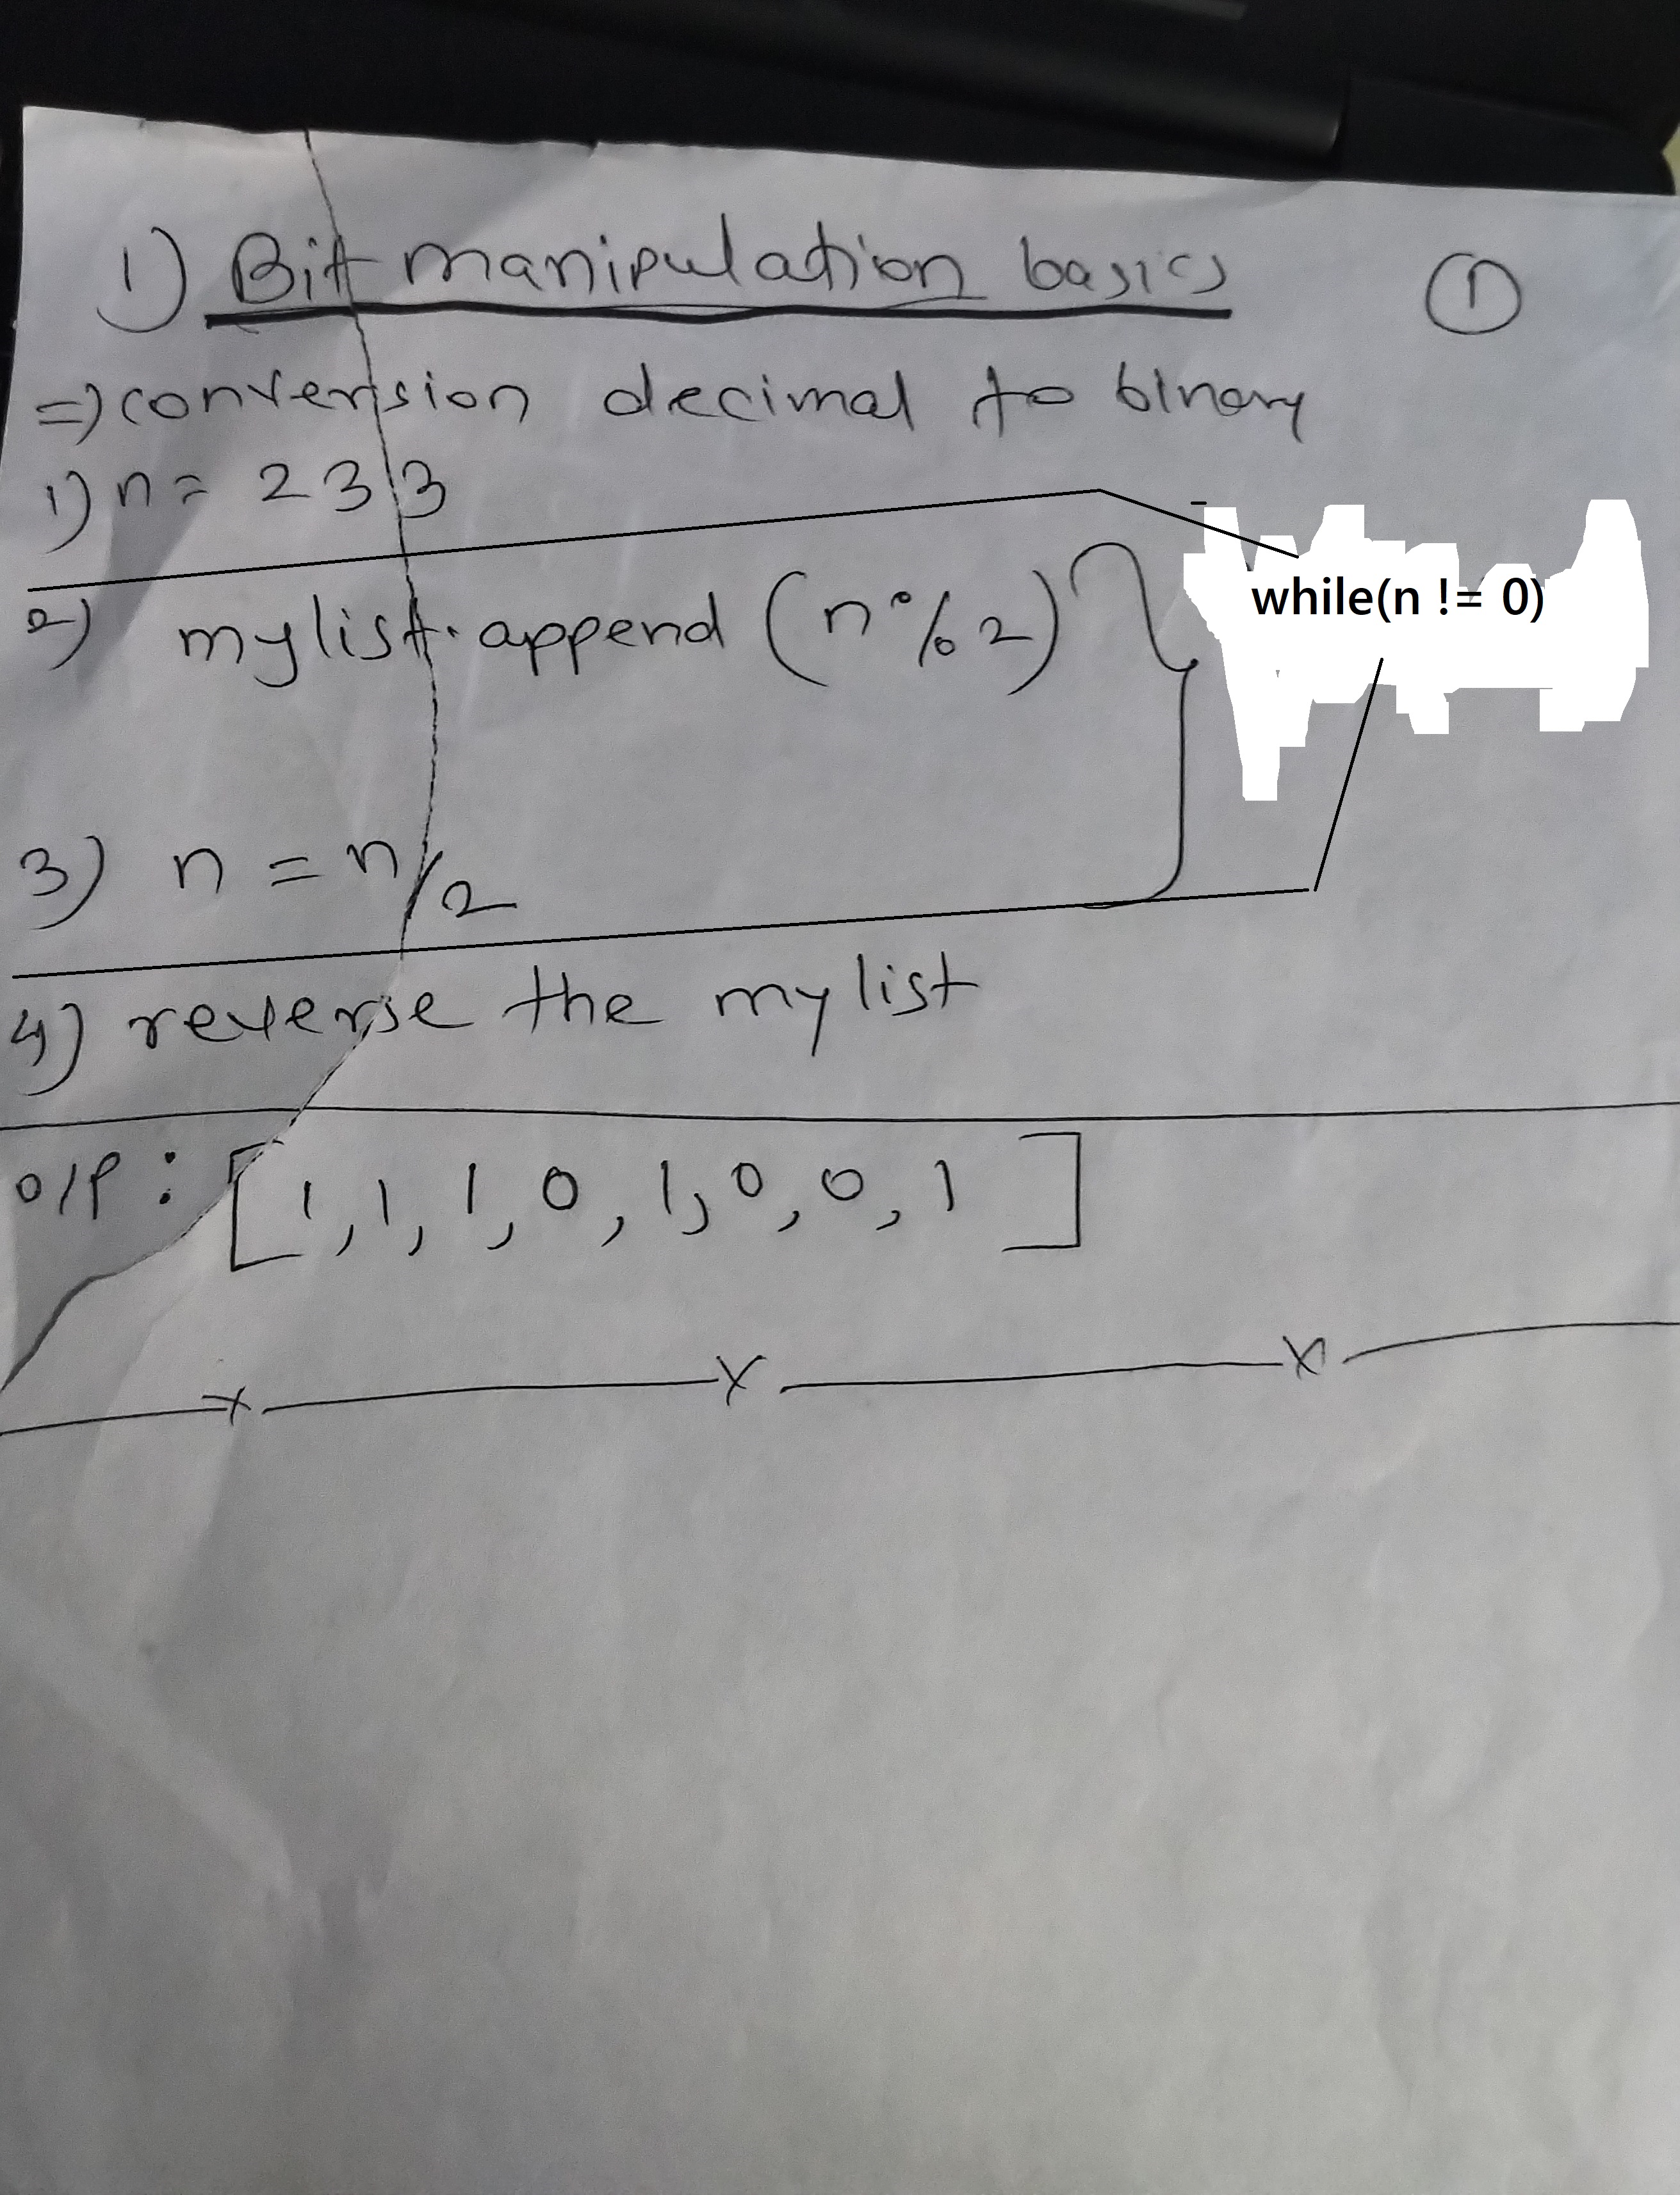 1) Bit manipulation basics 1
=> conversion decimal to binary
1) n = 233
2) mylist.append (n%2)
while(n != 0)
3) n = n/2
4) reverse the mylist
O/P : [1, 1, 1, 0, 1, 0, 0, 1]
x x x